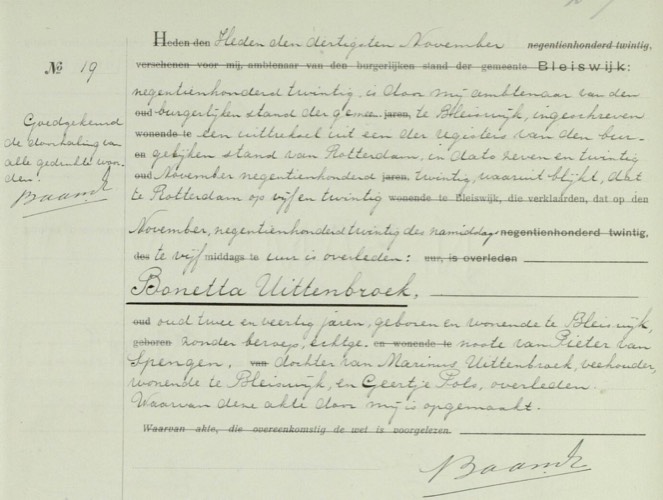 Nº 19
Heden den Heden den dertigsten November negentienhonderd twintig,
verschenen voor mij, ambtenaar van den burgerlijken stand der gemeente Bleiswijk:
negentienhonderd twintig is door mij ambtenaar van den
oud burgerlijken stand der gemeen jaren, te Bleiswijk, ingeschreven
wonende te een uittreksel uit een der registers van den bur-
en gelijken stand van Rotterdam, in dato zeven en twintig
oud November negentienhonderd jaren, twintig, waaruit blijkt, dat
te Rotterdam op vijf en twintig wonende te Bleiswijk, die verklaarden, dat op den
November, negentienhonderd twintig des namiddags negentienhonderd twintig,
des te vijf middags te uur is overleden: uur, is overleden
Bonetta Uittenbroek,
oud oud twee en veertig jaren, geboren en wonende te Bleiswijk,
geboren zonder beroep, echtge- en wonende te noote van Pieter van
Spengen, van dochter van Marinus Uittenbroek, veehouder,
wonende te Bleiswijk, en Geertje Pols, overleden.
Waarvan deze akte door mij is opgemaakt.
Waarvan akte, die overeenkomstig de wet is voorgelezen.
Goedgekeurd
de doorhaling van
alle gedrukte woor-
den.